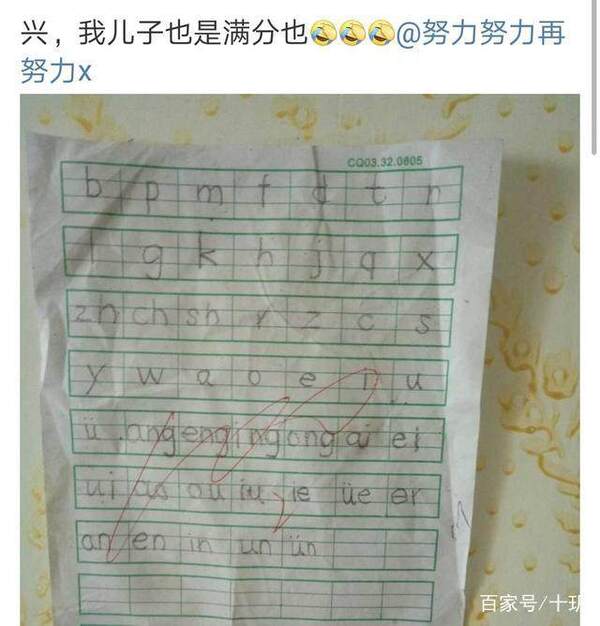 兴，我儿子也是满分也🤣🤣🤣@努力努力再
努力x
CQ03.32.0605
b p m f d t n
l g k h j q x
zh ch sh r z c s
y w a o e i u
ü ang eng ing ong ai ei
ui ao ou iu ie üe er
an en in un ün
百家号/十玥